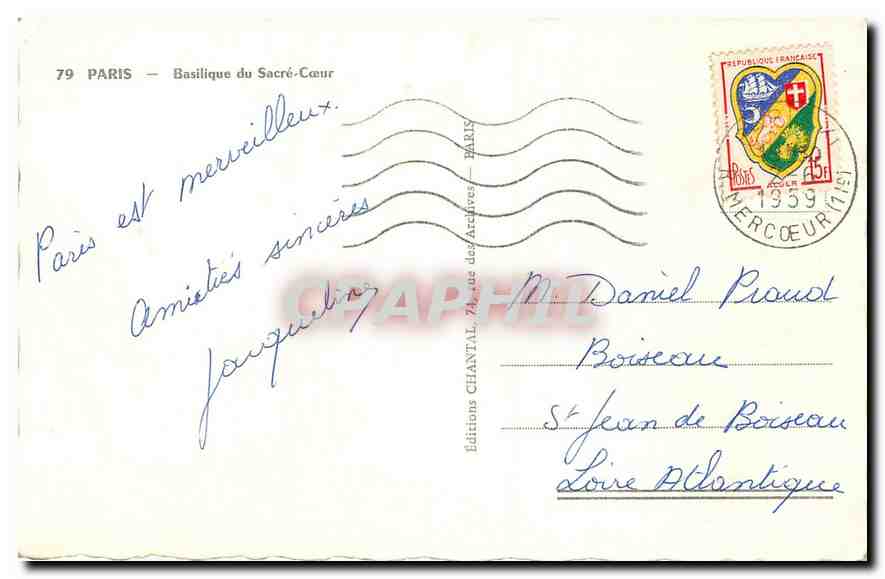 79 PARIS — Basilique du Sacré-Cœur
Paris est merveilleux.
Amitiés sincères
Jacqueline
Editions CHANTAL, 74, rue des Archives — PARIS
REPUBLIQUE FRANÇAISE
POSTES
ALGER
15F
1959
R. MERCŒUR (11E)
CPAPHIL
M. Daniel Praud
Boiseau
St Jean de Boiseau
Loire Atlantique